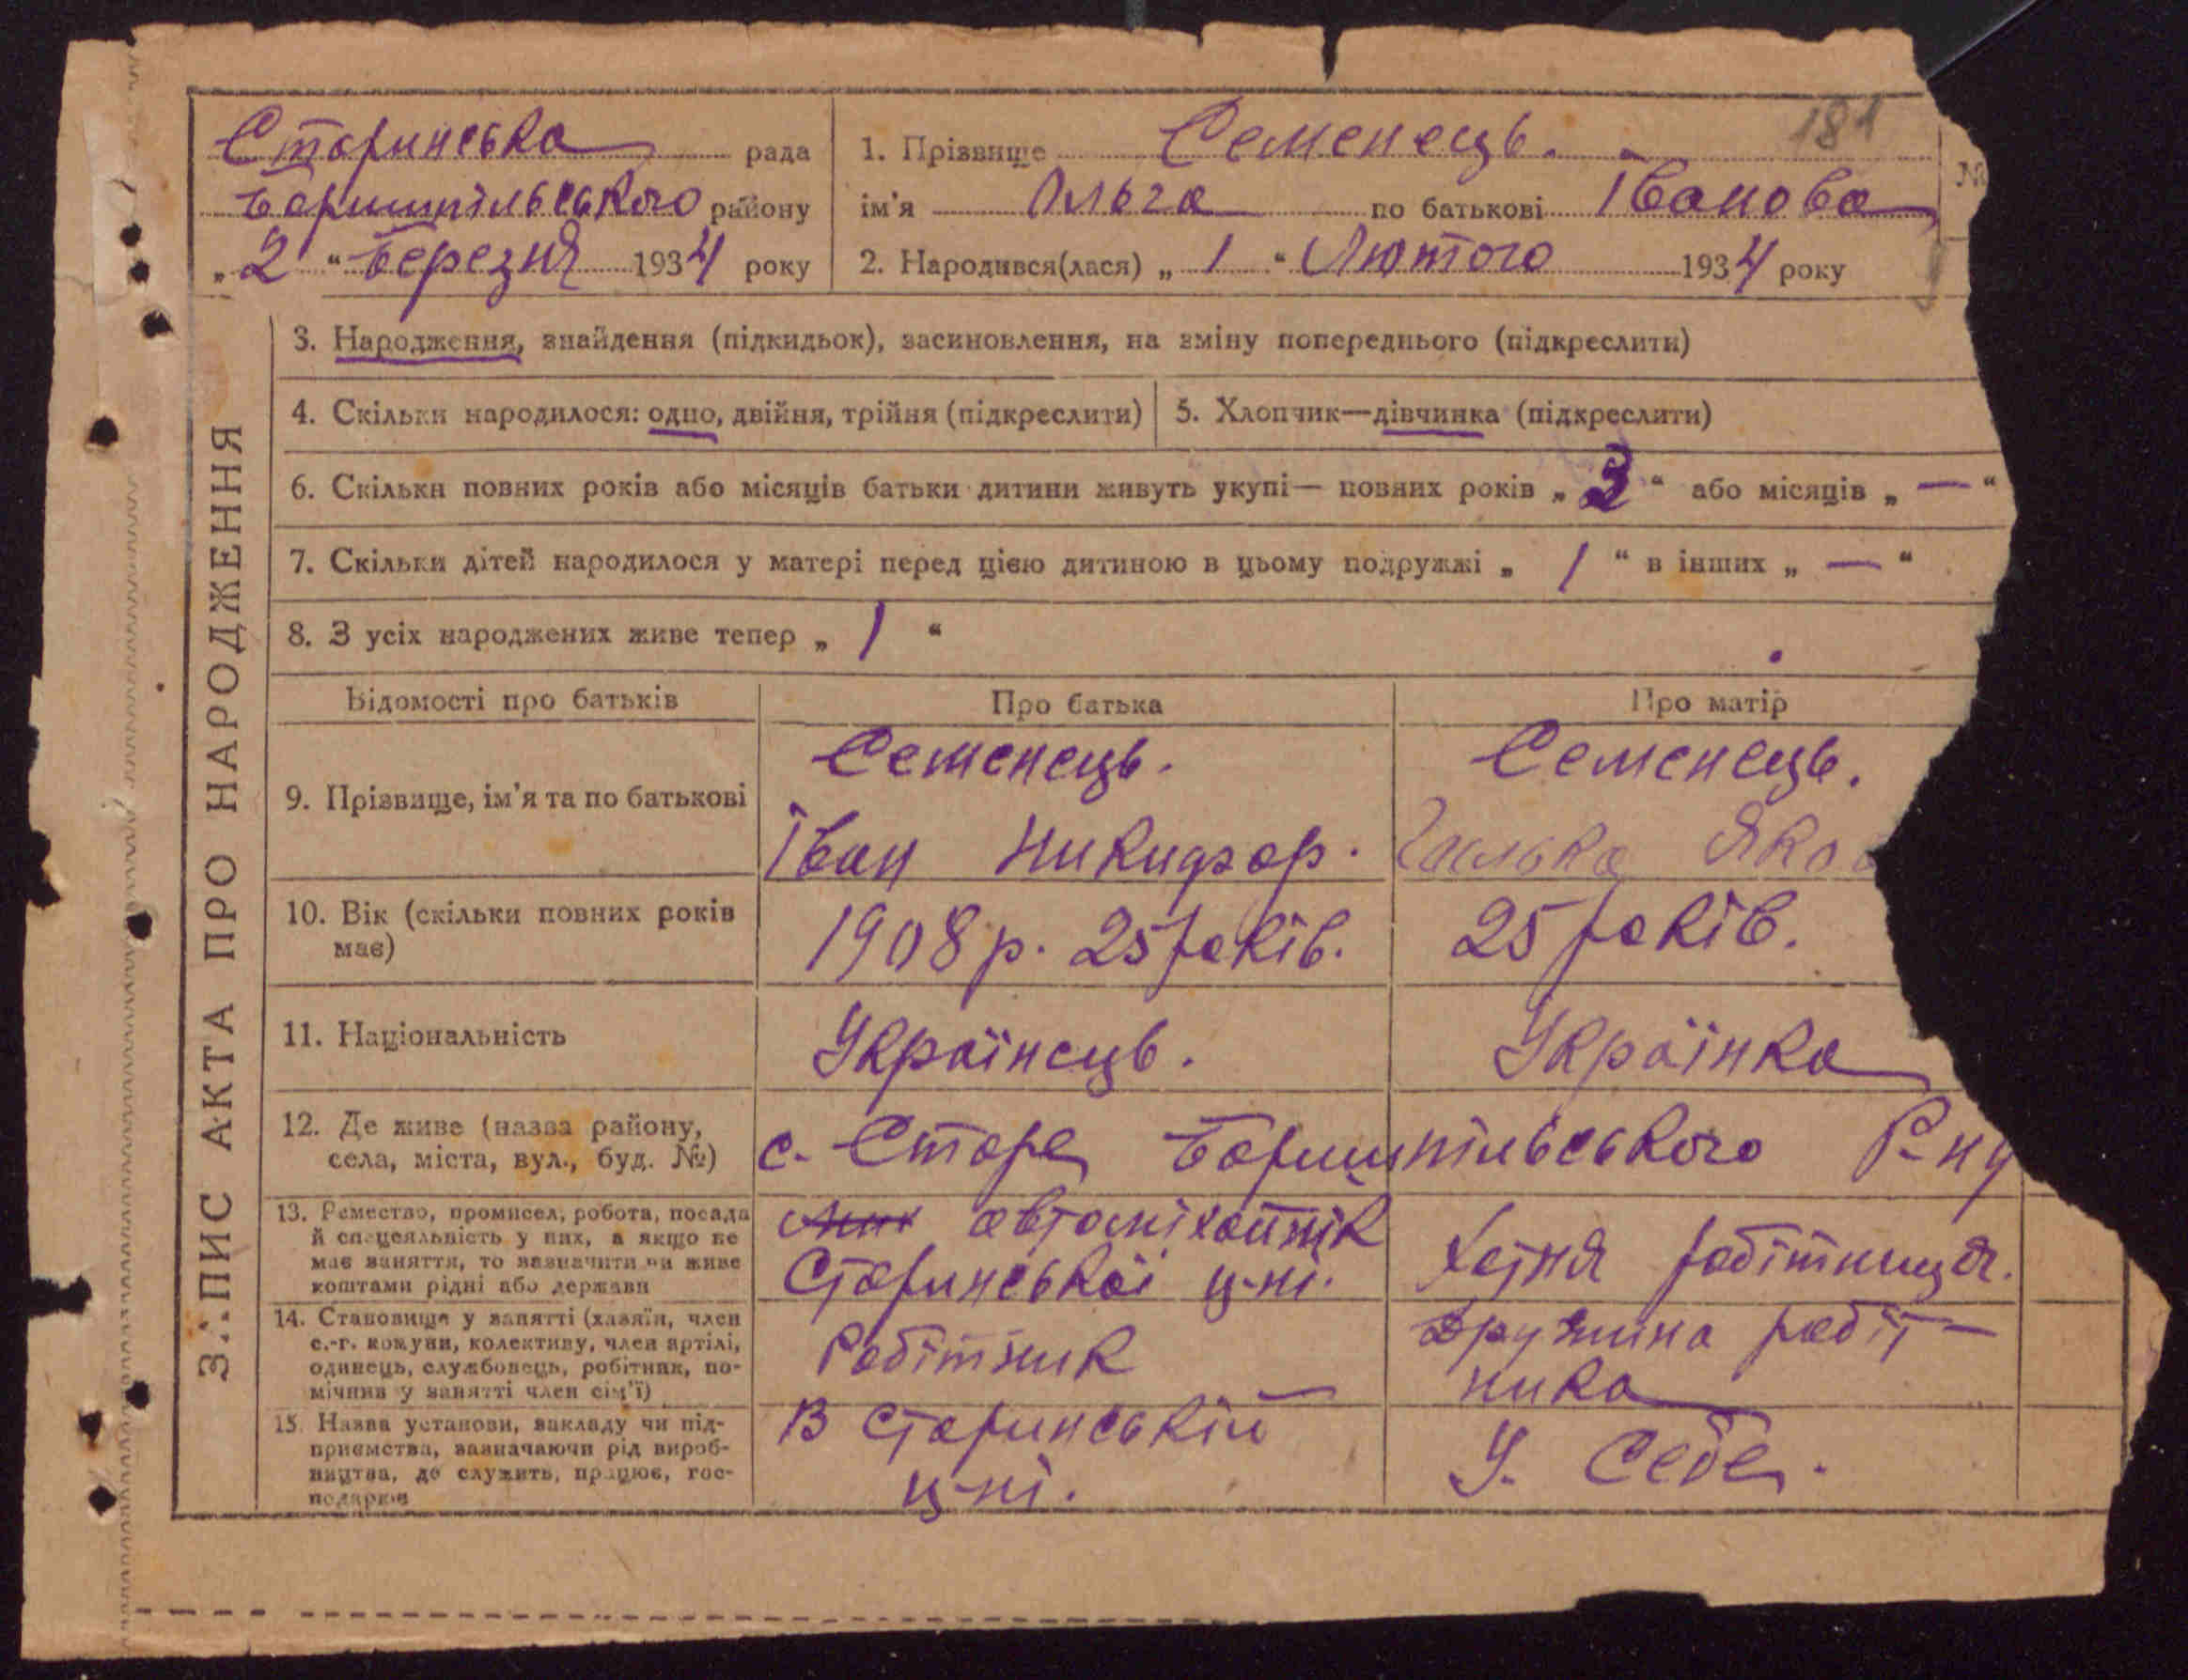 181
Старинська рада
Бориспільського району
„ 2 “ Березня 1934 року
1. Прізвище Семенець.
ім'я Ольга по батькові Іванова
№
2. Народився(лася) „ 1 “ Лютого 1934 року
ЗАПИС АКТА ПРО НАРОДЖЕННЯ
3. Народження, знайдення (підкидьок), засиновлення, на зміну попереднього (підкреслити)
4. Скільки народилося: одно, двійня, трійня (підкреслити)
5. Хлопчик—дівчинка (підкреслити)
6. Скільки повних років або місяців батьки дитини живуть укупі— повних років „ 3 “ або місяців „ — “
7. Скільки дітей народилося у матері перед цією дитиною в цьому подружжі „ 1 “ в інших „ — “
8. З усіх народжених живе тепер „ 1 “
Відомості про батьків
Про батька
Про матір
9. Прізвище, ім'я та по батькові
Семенець.
Іван Никифор.
Семенець.
Яков
10. Вік (скільки повних років
має)
1908 р. 25 років.
25 років.
11. Національність
Українець.
Українка
12. Де живе (назва району,
села, міста, вул., буд. №)
с. Старе Бориспільського Р-ну
13. Ремество, промисел, робота, посада
й спеціяльність у них, а якщо не
має заняття, то зазначити чи живе
коштами рідні або держави
Старинської ц-ні.
Хатня робітниця.
14. Становище у занятті (хазяїн, член
с.-г. комуни, колективу, член артілі,
одинець, службовець, робітник, по-
мічник у занятті член сім'ї)
Робітник
Дружина робіт-
ника
15. Назва установи, закладу чи під-
приємства, зазначаючи рід вироб-
ництва, де служить, працює, гос-
подарює
В Старинській
ц-ні.
У. Себе.